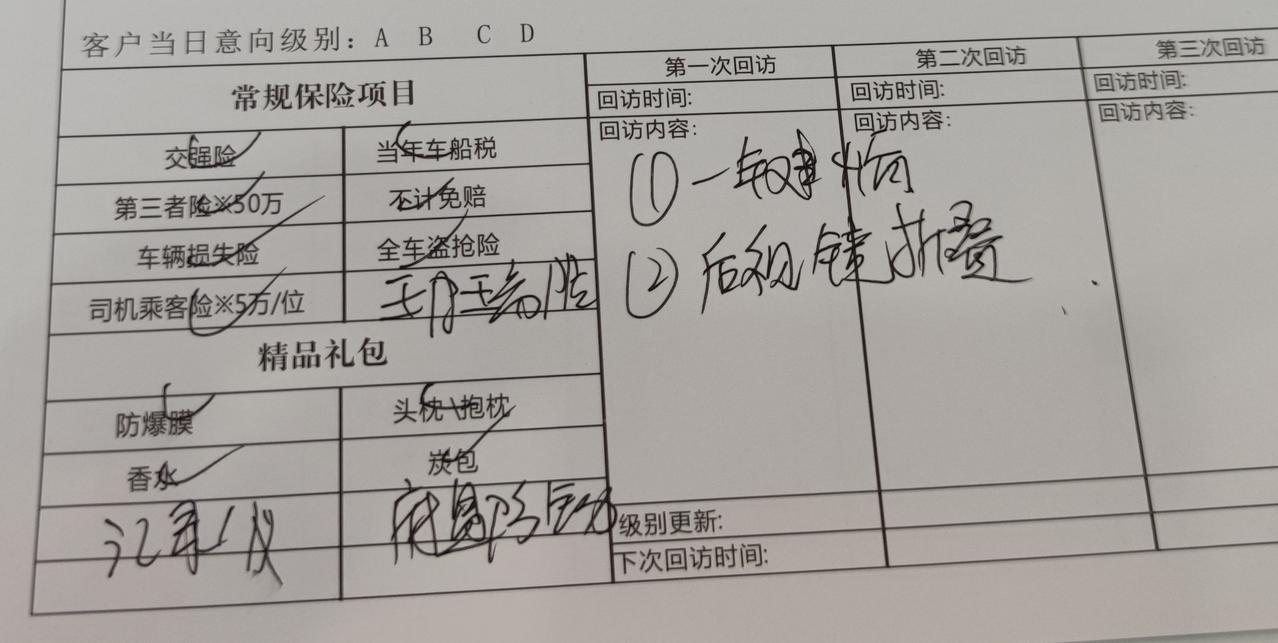 客户当日意向级别：A B C D
常规保险项目
交强险 当年车船税
第三者险※50万 不计免赔
车辆损失险 全车盗抢险
司机乘客险※5万/位 玻璃险
精品礼包
防爆膜 头枕\抱枕
香水 炭包
记录仪
第一次回访 第二次回访 第三次回访
回访时间: 回访时间: 回访时间:
回访内容: 回访内容: 回访内容:
① 一键
② 后视镜折叠
级别更新:
下次回访时间: